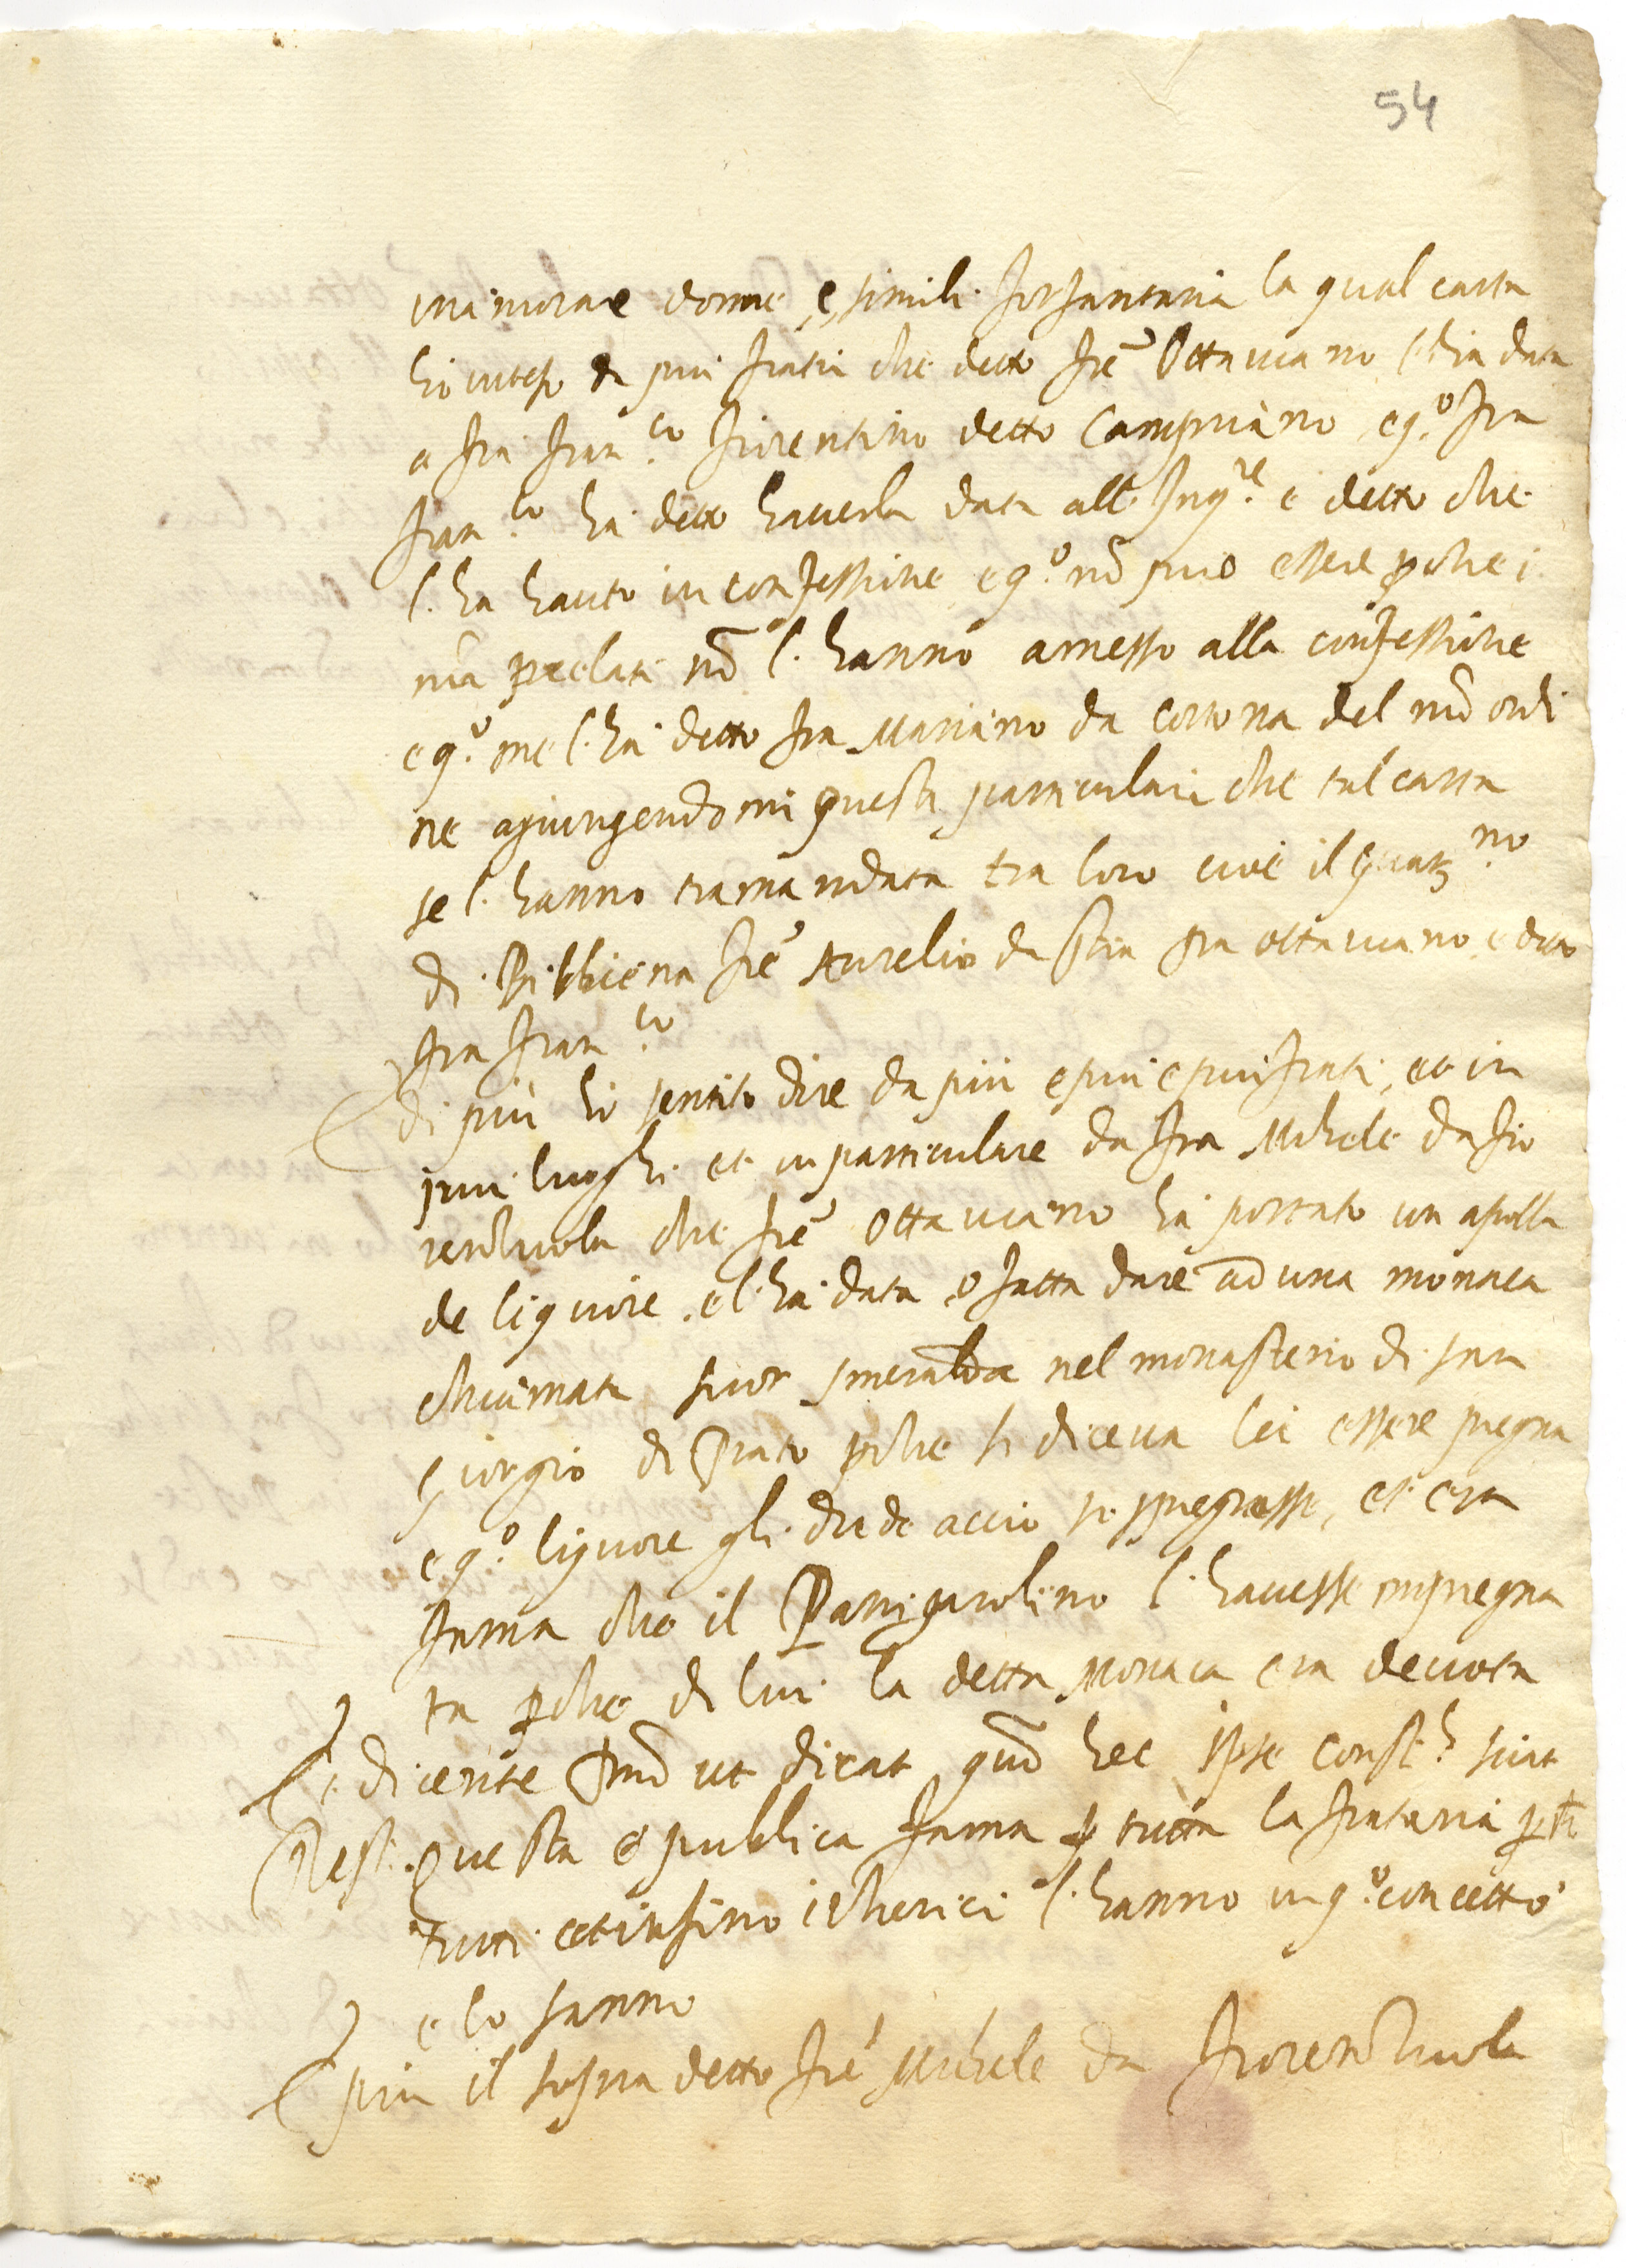 54
inamorare donne, e simili forfantaria la qual carta
ho inteso da piu fratri che detto frē Ottaviano l'hia data
a fra Fran.co fiorentino detto Campriano, e q.o fra
Fran.co ha detto haverla data all Inq.re e detto che
l'ha hauto in confessione e q.o nō puo essere pche i
mia prelati nō l'hanno amesso alla confessione
e q.o me l'ha detto fra Mariano da Cortona del mio ordi
ne agiungendomi questi particulari che tal carta
se l'hanno tramandata tra loro cioè il Guar.no
di Bibbiena frē Aurelio da Stia fra Ottaviano, e detto
fra Fran.co
di più ho sentito dire da più e più e più frati, et in
più luoghi et in particulare da fra Michele da Fio
renzuola che frē Ottaviano ha portato un apolla
de liquore e l'ha data o fatta dare ad una monaca
chiamata suor Smeralda nel monasterio di san
Giorgio di Prato pche si diceva lei essere pregna
e q.o liquore gli diede accio si spregnasse, et era
fama che il Panigarolino l'havesse impregna
ta pche di lui la detta Monaca era devota
e dicente Dnō ut dicat quō hec ipse Const.s sciat
Resp. questa è publica fama p tutta la frataria
tutti et insino i Cherici l'hanno in q.o concetto
e lo sanno
più il sopra detto frē Michele da Fiorenzuola